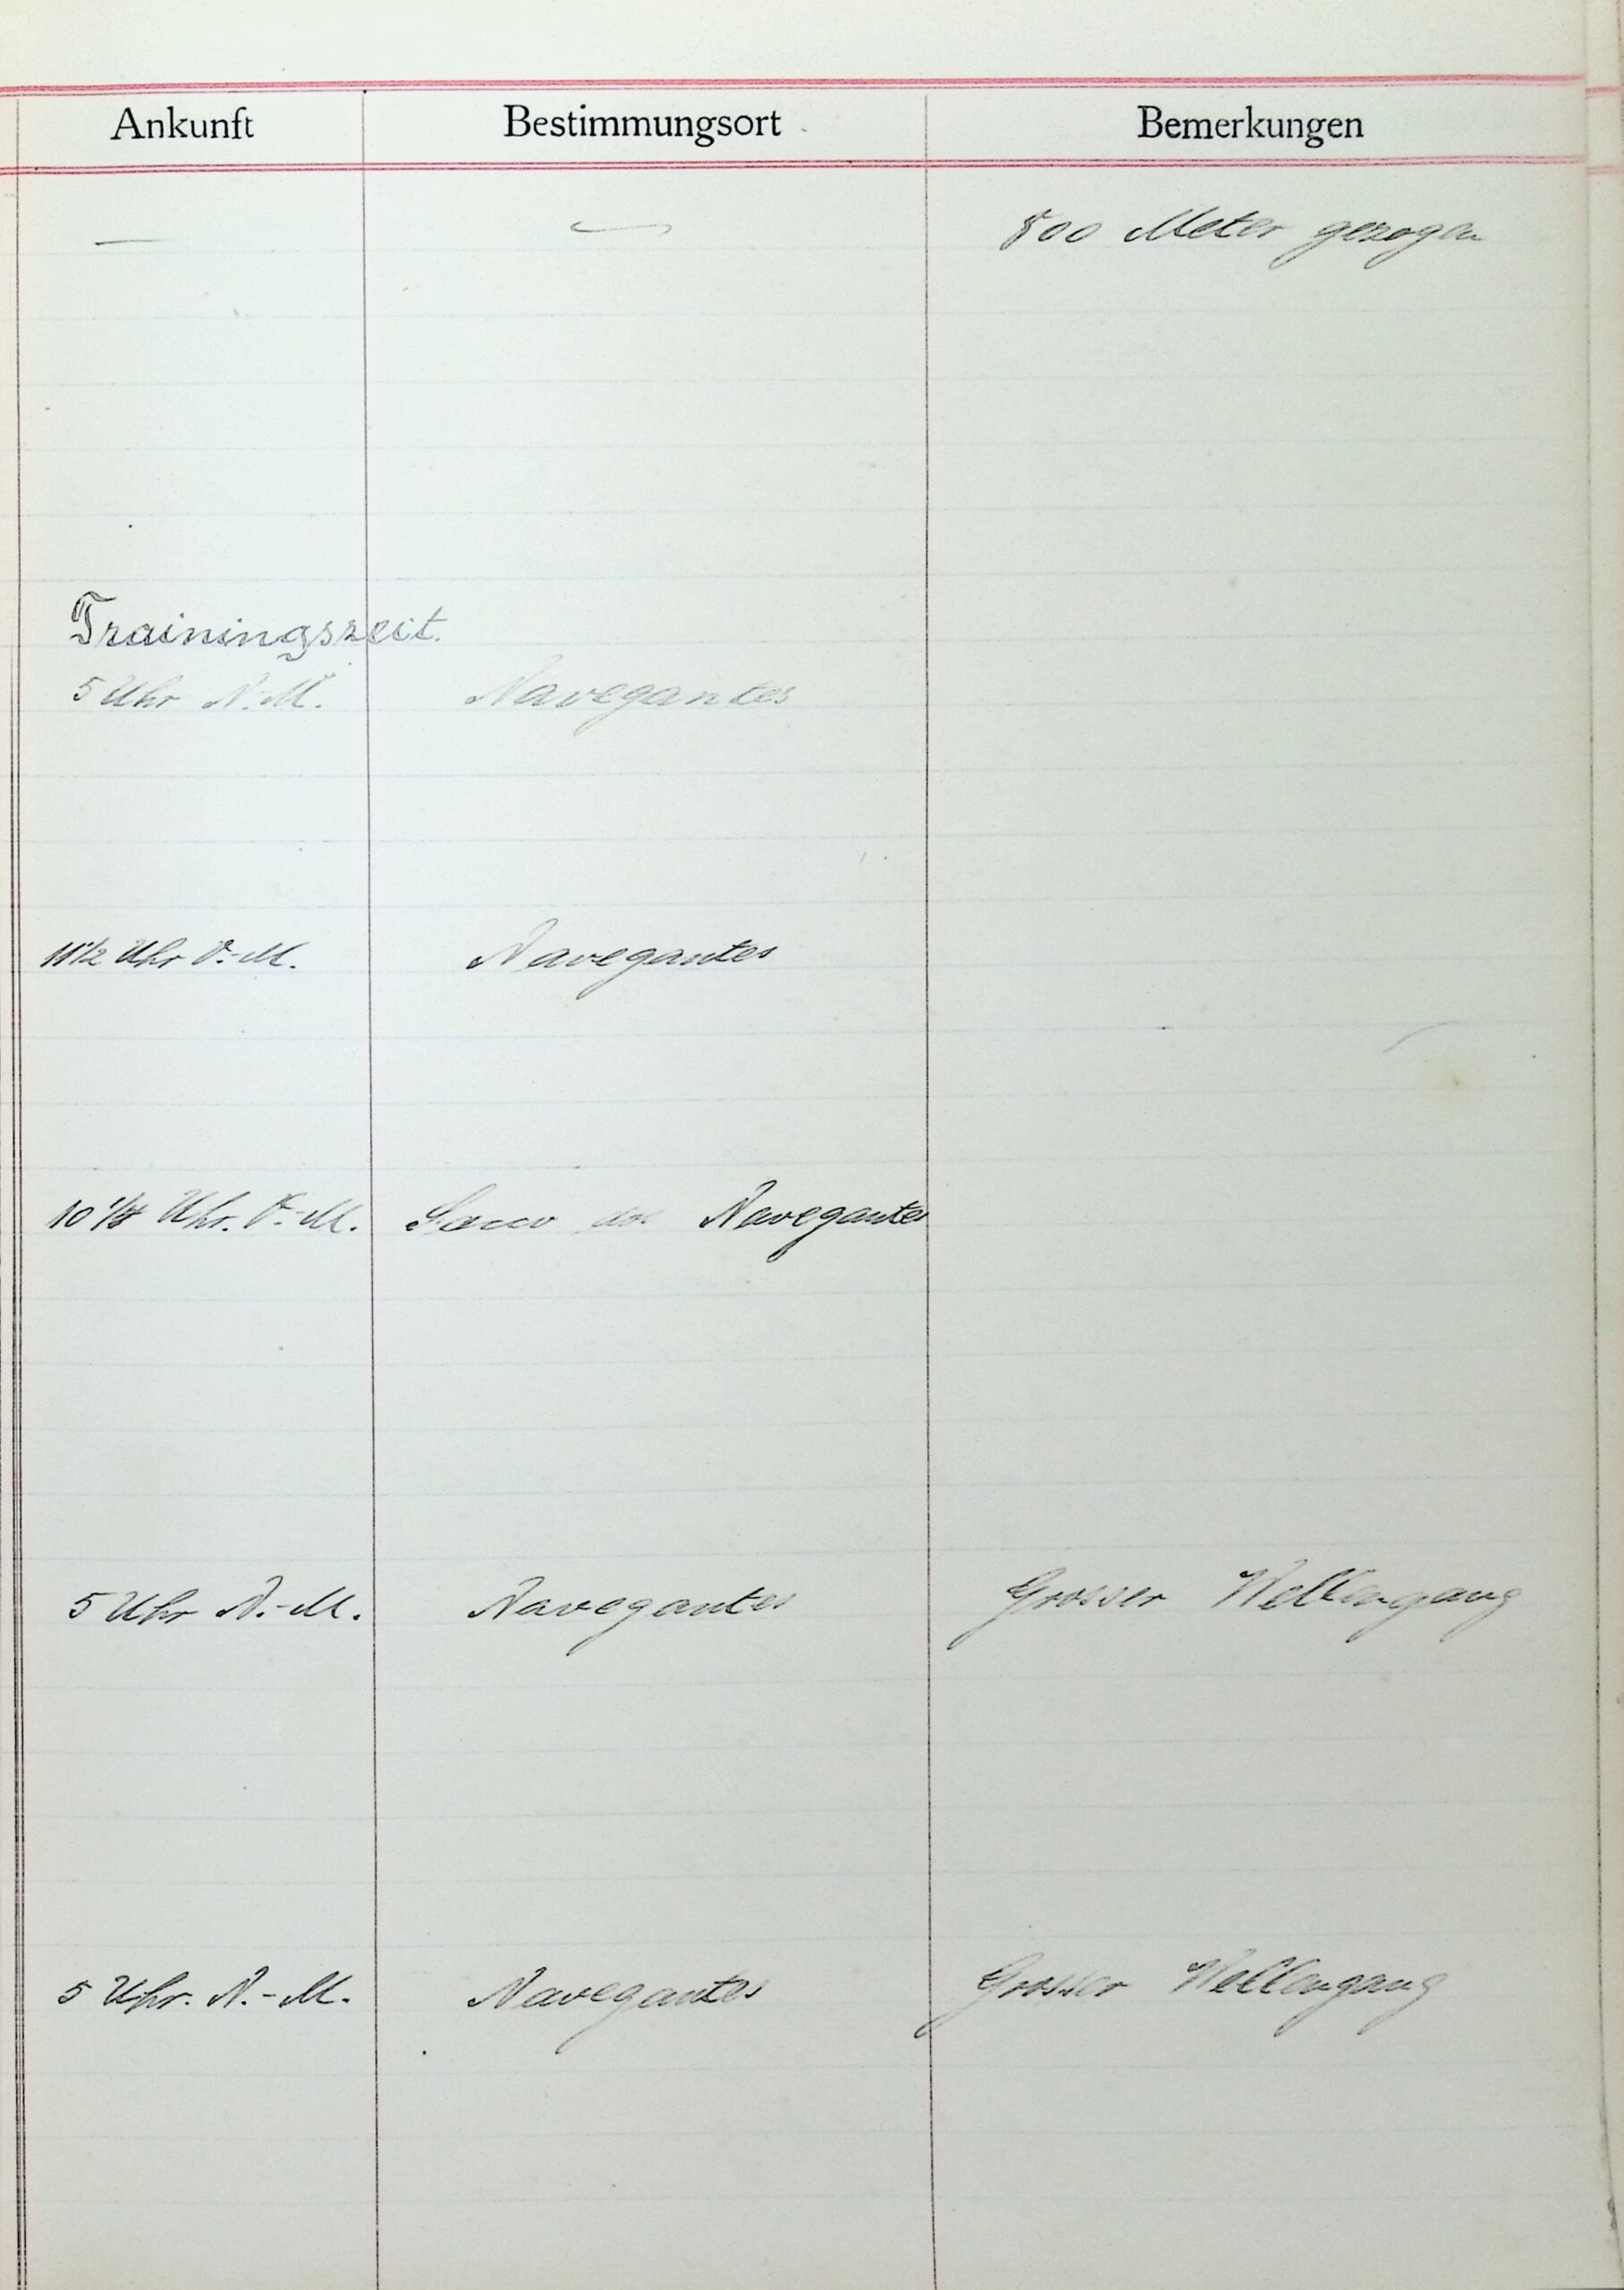 Ankunft Bestimmungsort Bemerkungen
— — 800 Meter gezogen
Trainingszeit.
5 Uhr N.-M. Navegantes
11 1/2 Uhr V.-M. Navegantes
10 Uhr. V.-M. Sacco dos Navegantes
5 Uhr N.-M. Navegantes Grosser Wellengang
5 Uhr. N.-M. Navegantes Grosser Wellengang